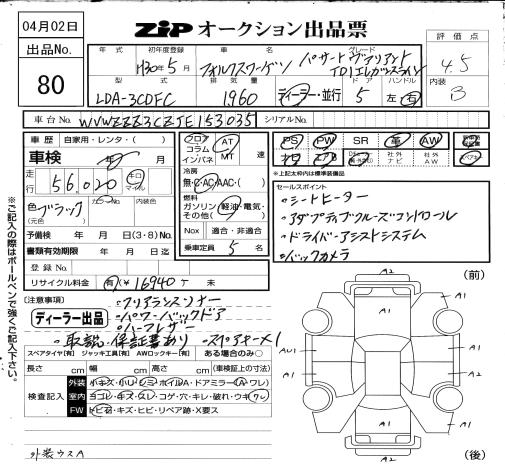 04月02日
ZiP オークション出品票
出品No.
80
年式
初年度登録
車名
グレード
評価点
H30年5月
フォルクスワーゲン
パサートヴァリアント
TDIエレガンスライン
4.5
型式
排気量
ドア
ハンドル
内装
LDA-3CDFC
1960
ディーラー・並行
5
左・右
B
車台No.
WVWZZZ3CZJE153035
シリアルNo.
車歴
自家用・レンタ・( )
車検
年 月
走行
56,020
キロ
マイル
色
ブラック
(元色)
カラーNo.
内装色
予備検 年 月 日(3・8)No.
書類有効期限 年 月 日迄
登録No.
リサイクル料金 有(¥16940)・未
フロア
コラム
インパネ
AT
MT
速
冷房
無・C・AC・AAC・( )
燃料
ガソリン・軽油・電気・
その他( )
Nox 適合・非適合
乗車定員 5 名
PS PW SR 革 AW
社外ナビ
社外AW
*上記太枠内は標準装備品
セールスポイント
・シートヒーター
・アダプティブクルーズコントロール
・ドライバーアシストシステム
・バックカメラ
注意事項
・クリアランスソナー
ディーラー出品
・パワーバックドア
・ハーフレザー
・取説・保証書あり ・スペアキー×1
スペアタイヤ[有] ジャッキ工具[有] AWロックキー[有] ある場合のみ○
長さ cm 幅 cm 高さ cm (車検証上の寸法)
検査記入
外装 小キズ・小ヘコ・シミ・ホイルA・ドアミラー(A・ワレ)
室内 ヨゴレ・キズ・スレ・コゲ・穴・キレ・破れ・ウキ・ワレ
FW トビ石・キズ・ヒビ・リペア跡・X要ス
外装ウスA
※ご記入の際はボールペンで強くご記入下さい。
A2
(前)
A1
A1
AU1
A1
A1
A1
A2
(後)